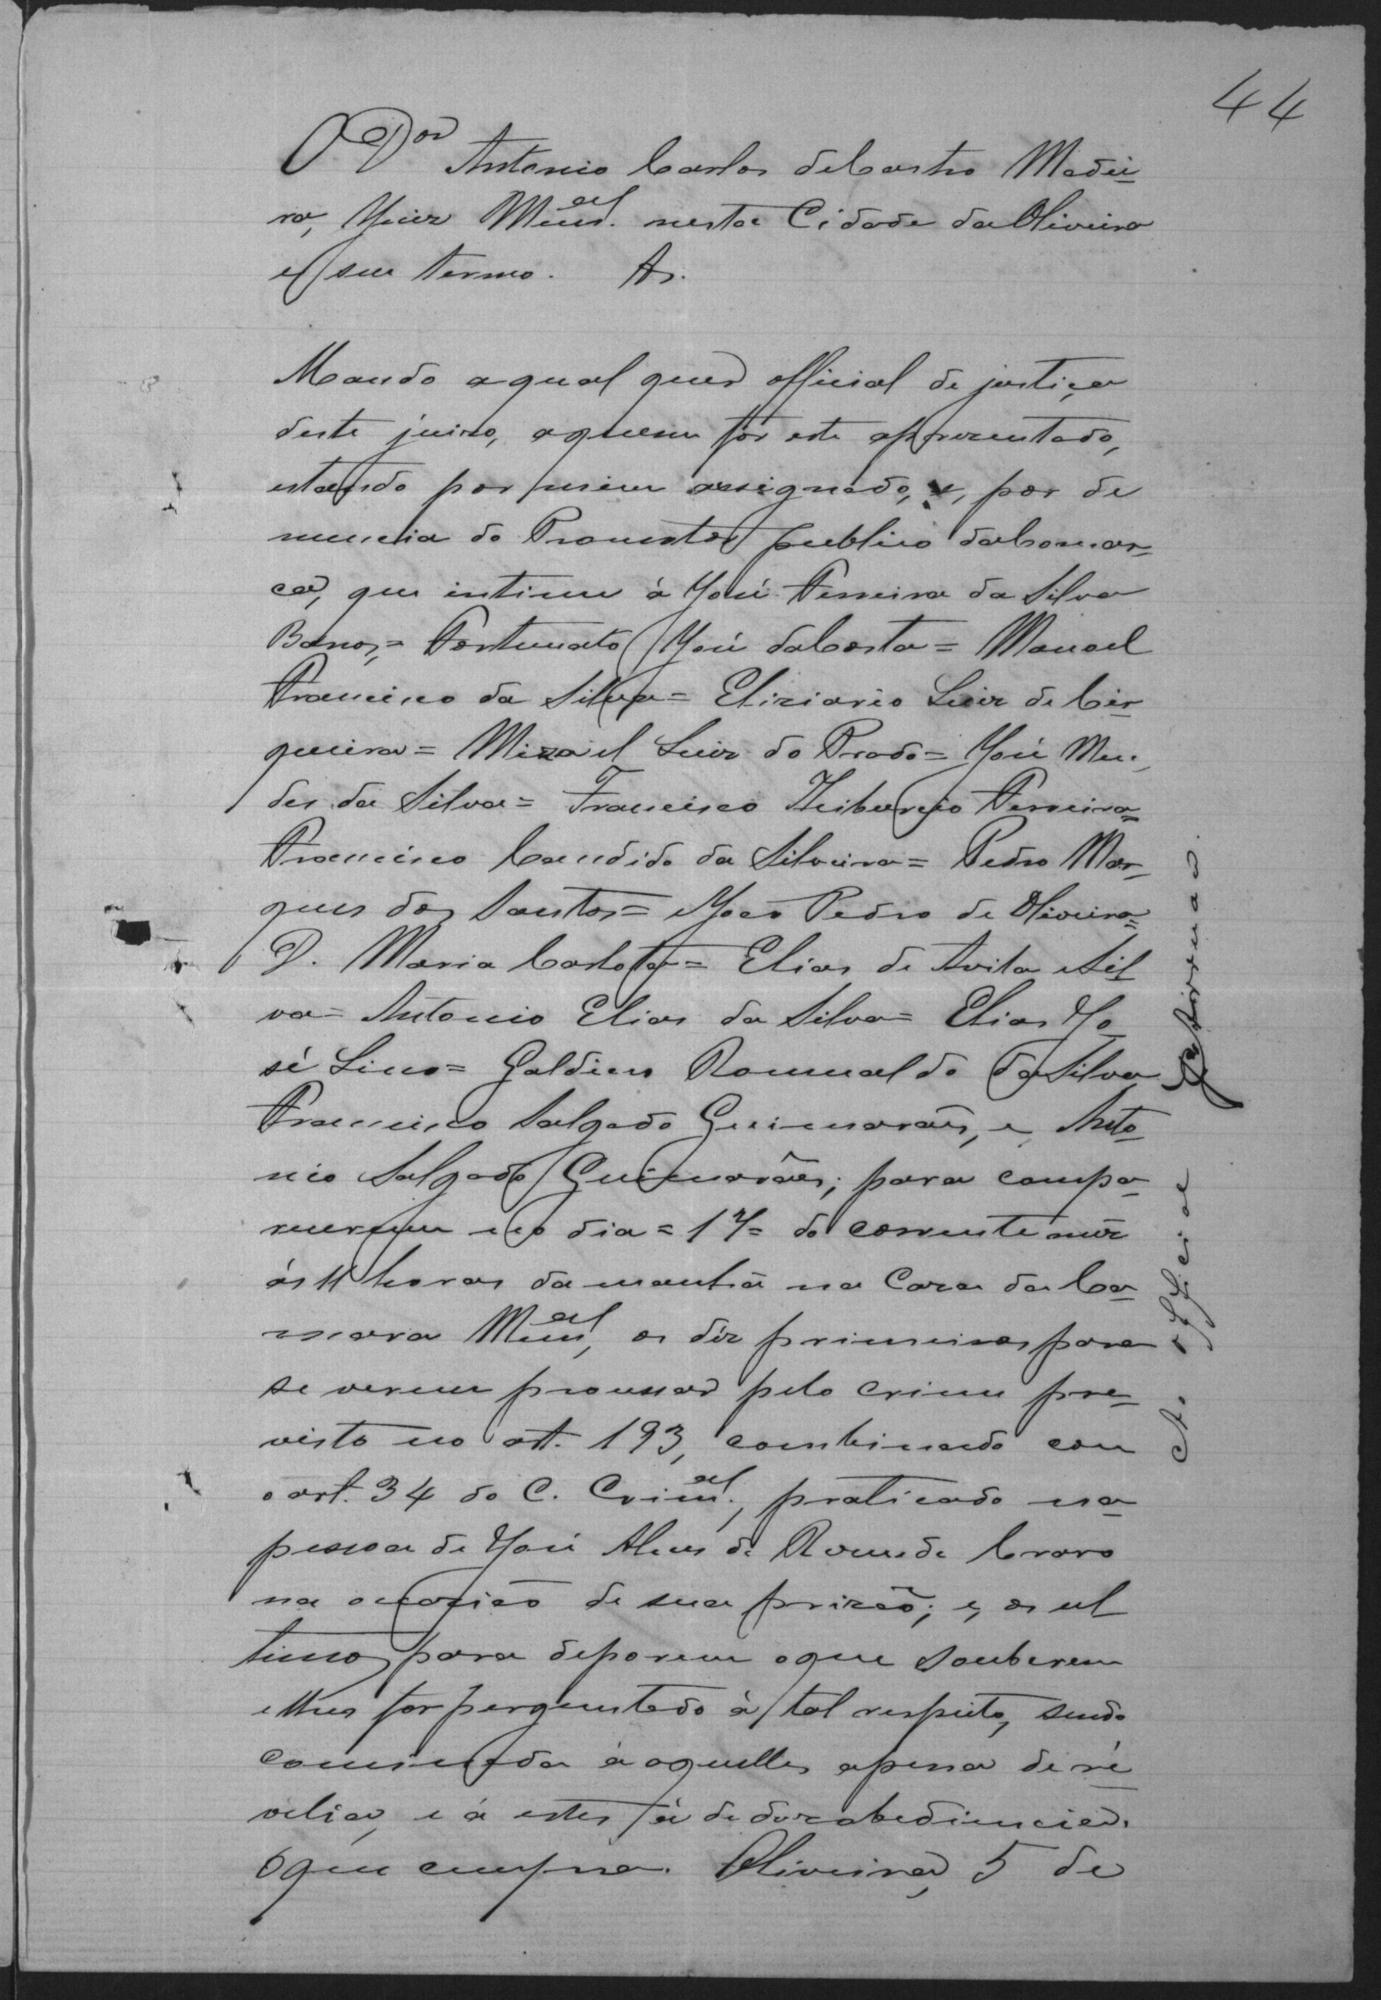 44
O Dor Antonio Carlos de Castro Madei-
ra, Juiz Mun.al nesta Cidade da Oliveira
e seu termo. &.
Mando a qual quer official de justiça
deste juizo, a quem fôr este aprezentado,
estando por mim assignado, e, por de
nuncia do Promotor publico da Comar-
ca, que intime á José Ferreira da Silva
Barros,= Fortunato José da Costa= Manoel
Francisco da Silva= Eliziario Luiz de Cir-
queira= Mizael Luiz do Prado= José Men-
des da Silva= Francisco Theburcio Ferreira=
Francisco Candido da Silveira= Pedro Mar-
ques dos Santos= João Pedro de Oliveira=
D. Maria Carlota= Elias de Avila e Sil
va= Antonio Elias da Silva= Elias Jo
sé Lino= Galdino Romualdo da Silva
Francisco Salgado Guimarães, e, Anto-
nio Salgado Guimarães; para compa-
recerem no dia =17= do corrente mez
ás 11 horas da manhã na Caza da Ca-
mara Mun.al, os déz primeiros para
se verem processar pelo crime pre-
visto no art. 193, combinado com
o art. 34 do C. Crim.al, praticado na
pessoa de José Alves de Rezende Cravo
na occazião de sua prizão; e, os ul
timos para deporem o que souberem
e lhes for perguntado á tal respeito, sendo
comminada á aquelles a pena de re-
velia, e á estes á de dezobediencia.
O que cumpra. Oliveira, 5 de
Ao official